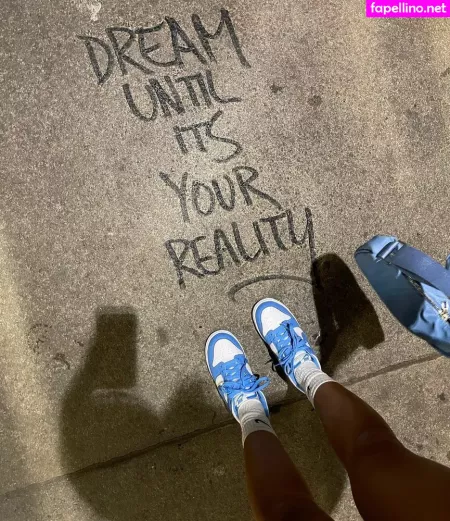 fapellino.net
DREAM
UNTIL
ITS
YOUR
REALITY